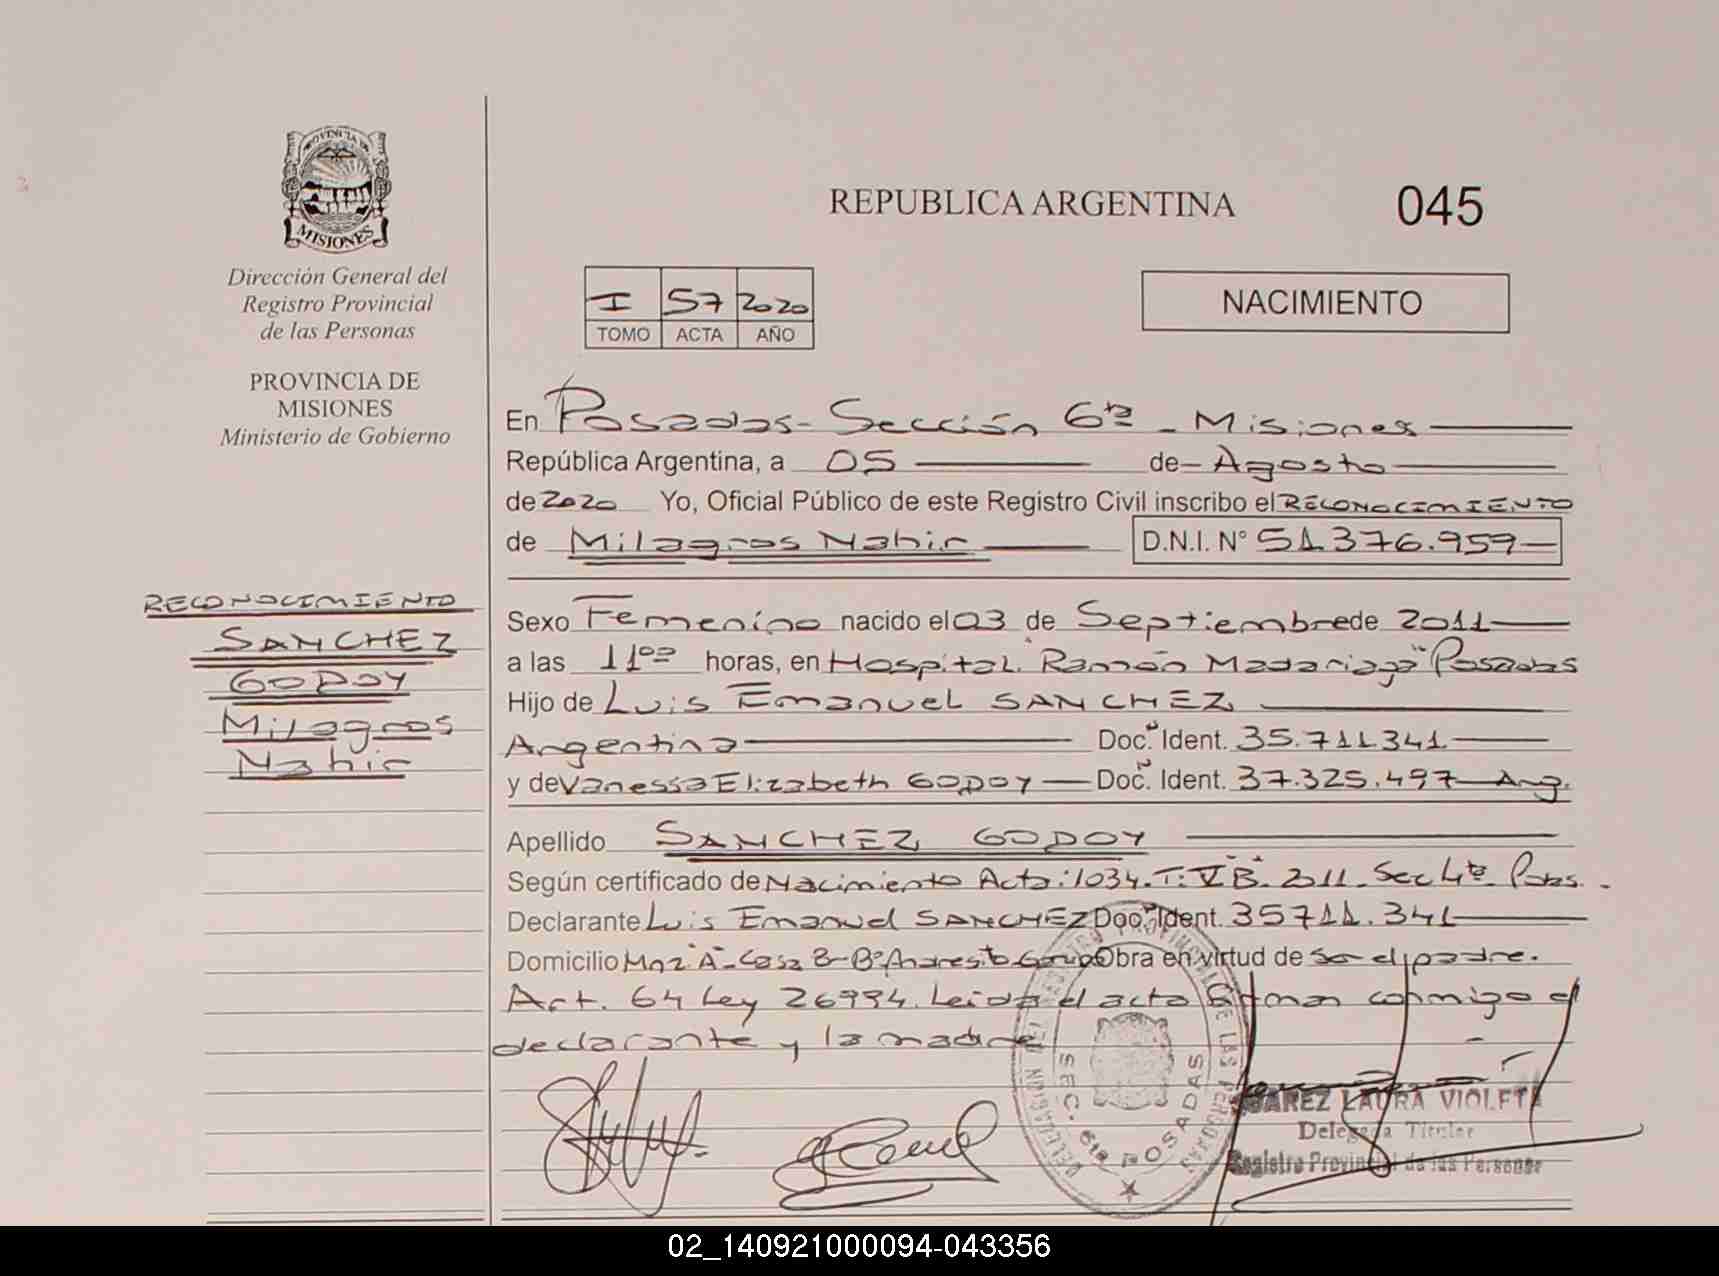 PROVINCIA DE
MISIONES
Dirección General del
Registro Provincial
de las Personas
PROVINCIA DE
MISIONES
Ministerio de Gobierno
RECONOCIMIENTO
SANCHEZ
GODOY
Milagros
Nahir
REPUBLICA ARGENTINA
045
I 57 2020
TOMO ACTA AÑO
NACIMIENTO
En Posadas - Sección 6ta - Misiones
República Argentina, a 05 de Agosto
de 2020 Yo, Oficial Público de este Registro Civil inscribo el RECONOCIMIENTO
de Milagros Nahir D.N.I. N° 51.376.959
Sexo Femenino nacido el 03 de Septiembre de 2011
a las 11 horas, en Hospital "Ramón Madariaga" Posadas
Hijo de Luis Emanuel SANCHEZ
Argentina Doc. Ident. 35.711.341
y de Vanessa Elizabeth GODOY Doc. Ident. 37.325.497 - Arg.
Apellido SANCHEZ GODOY
Según certificado de Nacimiento Acta: 1034. T: V "B". 2011. Sec 4ta Pdas.
Declarante Luis Emanuel SANCHEZ Doc. Ident. 35711.341
Domicilio Mnz "A" - Casa 8 - B° Andresito Obra en virtud de ser el padre.
Art. 64 Ley 26994. Leida el acta firman conmigo el
declarante y la madre
SEC. 6ta POSADAS
SUAREZ LAURA VIOLETA
Delegada Titular
Registro Provincial de las Personas
02_140921000094-043356